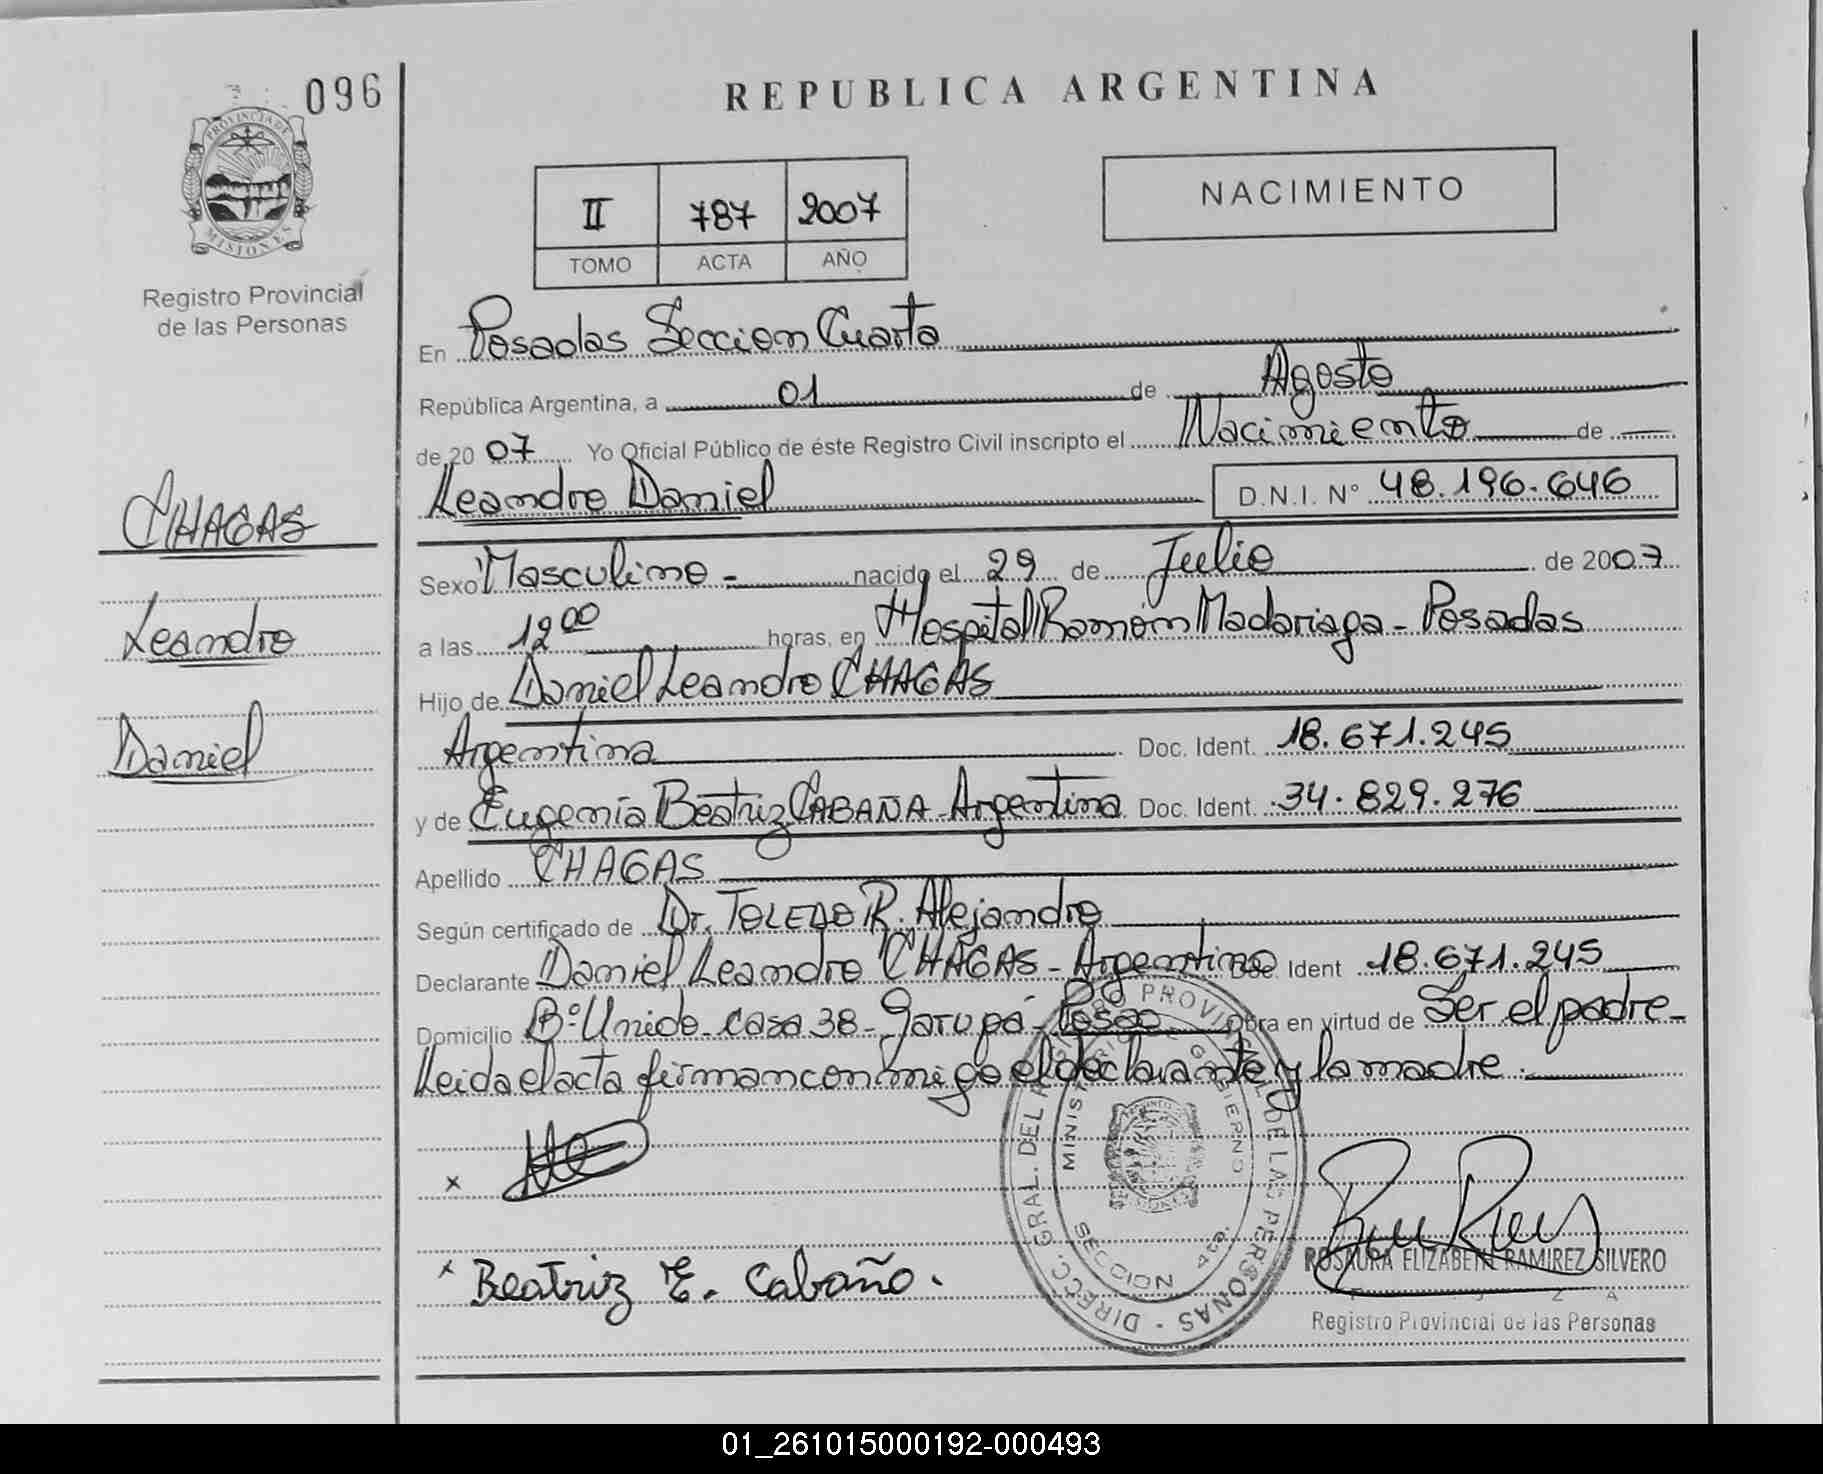 096
PROVINCIA DE
MISIONES
Registro Provincial
de las Personas
CHAGAS
Leandro
Daniel
REPUBLICA ARGENTINA
II 787 2007
TOMO ACTA AÑO
NACIMIENTO
En Posadas Seccion Cuarta
República Argentina, a 01 de Agosto
de 2007 Yo Oficial Público de éste Registro Civil inscripto el Nacimiento de
Leandro Daniel D.N.I. N° 48.196.646
Sexo Masculino - nacido el 29 de Julio de 2007
a las 12 00 horas, en Hospital Ramón Madariaga - Posadas
Hijo de Daniel Leandro CHAGAS
Argentina Doc. Ident. 18.671.245
y de Eugenia Beatriz CABAÑA - Argentina Doc. Ident. 34.829.276
Apellido CHAGAS
Según certificado de Dr. TOLEDO R. Alejandro
Declarante Daniel Leandro CHAGAS - Argentino Doc. Ident 18.671.245
Domicilio B° Unido - casa 38 - Garupá - Obra en virtud de Ser el padre -
Leida el acta firman conmigo el declarante y la madre.
x
x Beatriz E. Cabaña.
DIRECC. GRAL. DEL REGISTRO PROVINCIAL DE LAS PERSONAS -
MINISTERIO DE GOBIERNO
SECCION 4ta.
ROSAURA ELIZABETH RAMIREZ SILVERO
Registro Provincial de las Personas
01_261015000192-000493